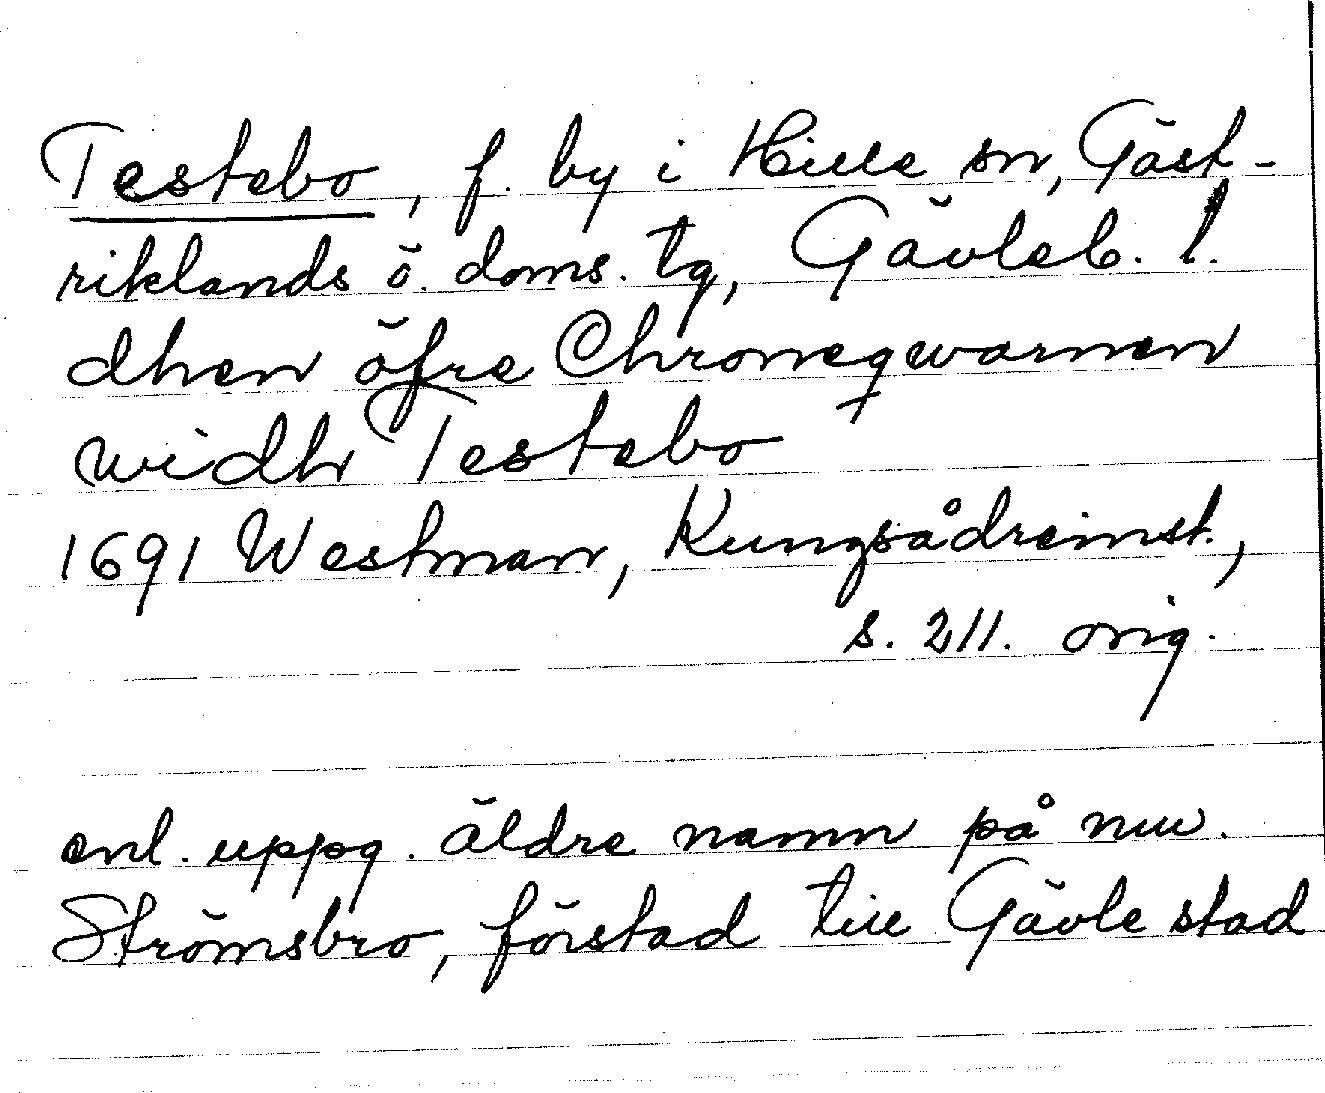 Testebo, f. by i Hille sn, Gäst-
riklands ö. doms. tg, Gävleb. l.
dhen öfre Chroneqwarnen
widh Testebo
1691 Westman, Kungsådreinst.,
s. 211. orig.
enl. uppg. äldre namn på nuv.
Strömsbro, förstad till Gävle stad